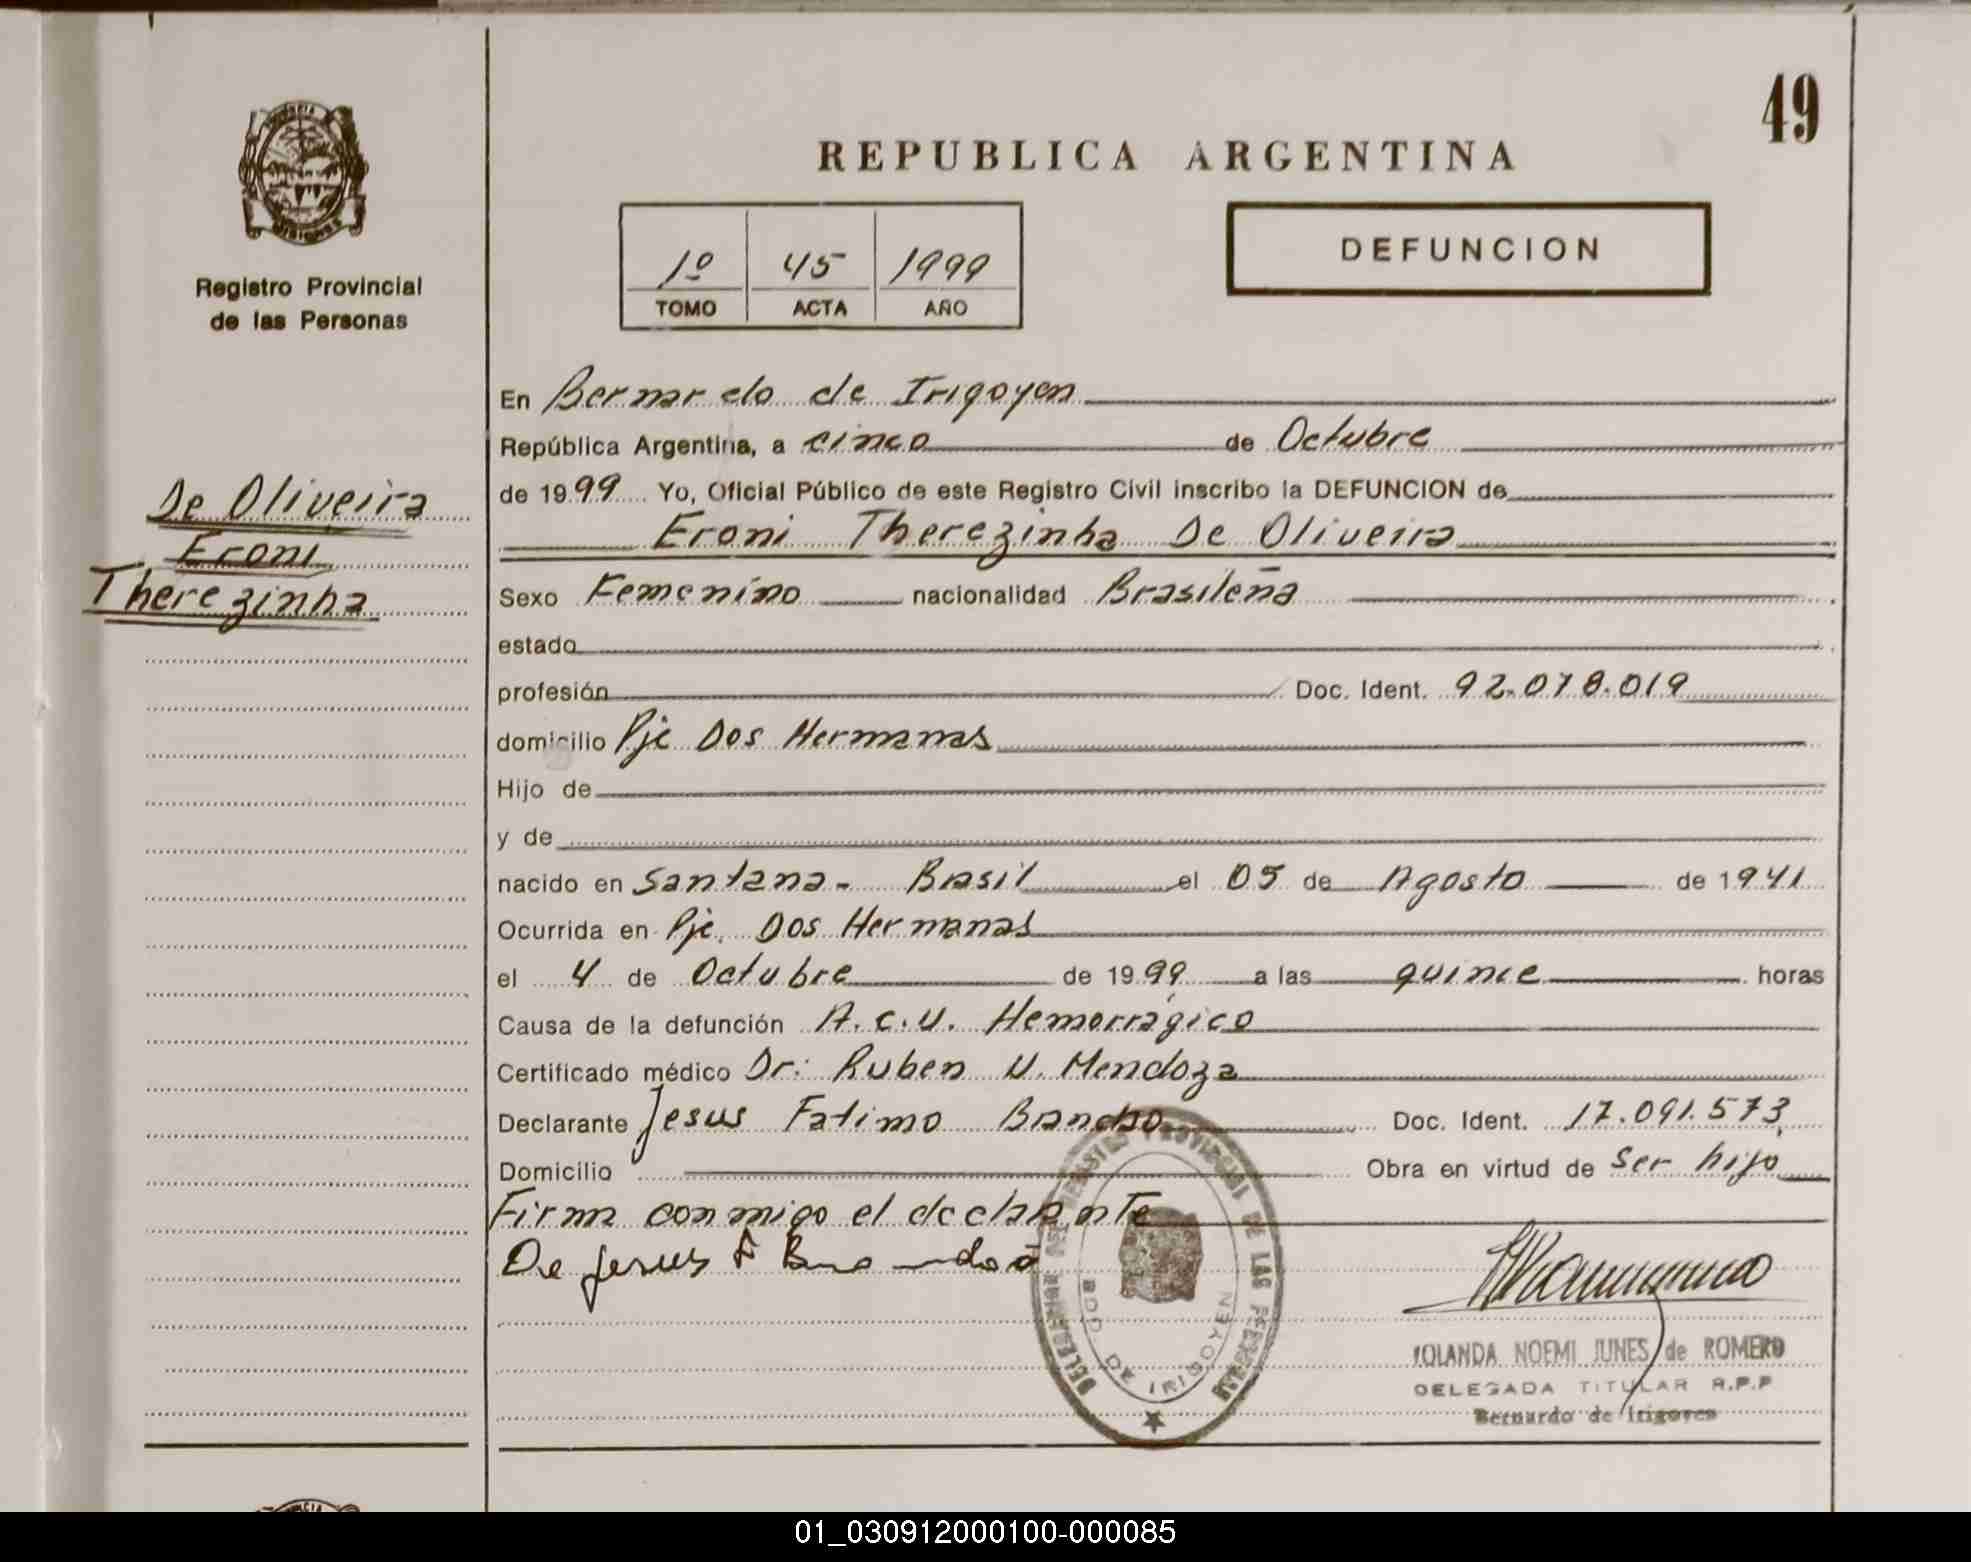 49
REPUBLICA ARGENTINA
1º 45 1999
TOMO ACTA AÑO
DEFUNCION
Registro Provincial
de las Personas
De Oliveira
Eroni
Therezinha
En Bernardo de Irigoyen
República Argentina, a cinco de Octubre
de 1999 Yo, Oficial Público de este Registro Civil inscribo la DEFUNCION de
Eroni Therezinha De Oliveira
Sexo Femenino nacionalidad Brasileña
estado
profesión Doc. Ident. 92.078.019
domicilio Pje Dos Hermanas
Hijo de
y de
nacido en Santana - Brasil el 05 de Agosto de 1941
Ocurrida en Pje. Dos Hermanas
el 4 de Octubre de 1999 a las quince horas
Causa de la defunción A.C.V. Hemorrágico
Certificado médico Dr: Ruben V. Mendoza
Declarante Jesus Fatimo Doc. Ident. 17.091.573
Domicilio Obra en virtud de Ser hijo
Firma conmigo el declarante
De Jesus F
DELEGACION DEL REGISTRO PROVINCIAL DE LAS PERSONAS
BDO. DE IRIGOYEN
YOLANDA NOEMI JUNES de ROMERO
DELEGADA TITULAR R.P.P
Bernardo de Irigoyen
01_030912000100-000085